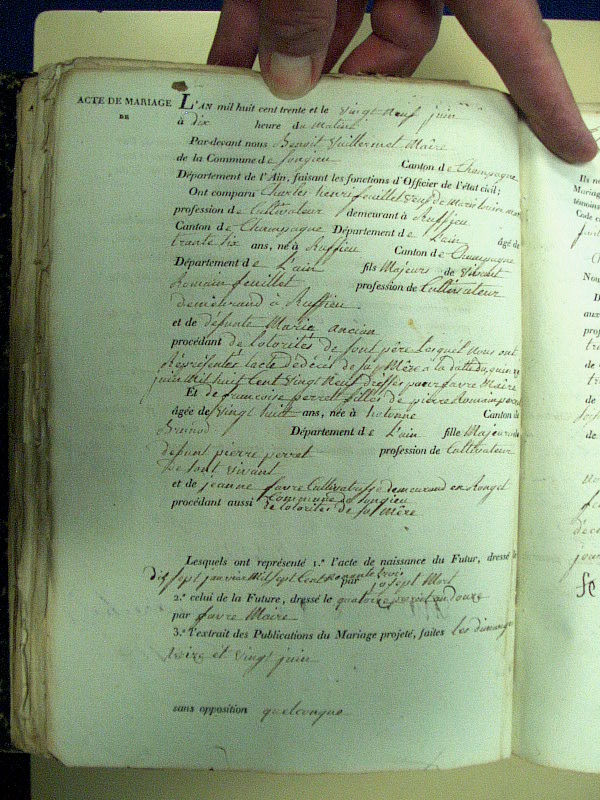 ACTE DE MARIAGE
DE
L'AN mil huit cent trente et le vingt neuf juin
à dix heure du matin
Par-devant nous Benoit Vuillermet Maire
de la Commune de Songieu Canton de Champagne
Département de l'Ain, faisant les fonctions d'Officier de l'état civil;
Ont comparu Charles henri feuillet veuf de Marie
profession de Cultivateur demeurant à Ruffieu
Canton de Champagne Département de L'ain âgé de
trante six ans, né à Ruffieu Canton de Champagne
Département de L'ain fils Majeurs de vivant
Romain feuillet profession de Cultivateur
demeurand à Ruffieu
et de défunte Marie ancian
procédant de lotorités de sont père Lesquel nous ont
Réprésentés lacte dedécés de sa Mère à la datte du quinze
juin Mil huit Cent Vingt Neuf dressés par favre Maire
Et de francoise perret filles de pierre Romain perret
âgée de Vingt huit ans, née à hotonne Canton de
Brenod Département de L'ain fille Majeur de
défunt pierre perret profession de Cultivateur
De sont vivant
et de jeanne favre Cultivatrisse demeurand en
Commune de Songieu
procédant aussi de lotorités de sa Mère
Lesquels ont représenté 1.º l'acte de naissance du Futur, dressé le
dix sept janvier Mil sept Cent Nonante trois
par joseph
2.º celui de la Future, dressé le quatorze an Douze
par favre Maire
3.º l'extrait des Publications du Mariage projeté, faites les dimanche
treize et vingt juin
sans opposition quelconque